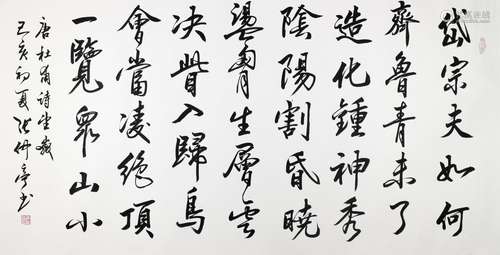 岱宗夫如何
齊魯青未了
造化鍾神秀
陰陽割昏曉
盪胷生層雲
决眥入歸鳥
會當凌絕頂
一覽衆山小
唐杜甫诗望嶽
己亥初夏張仲亭书